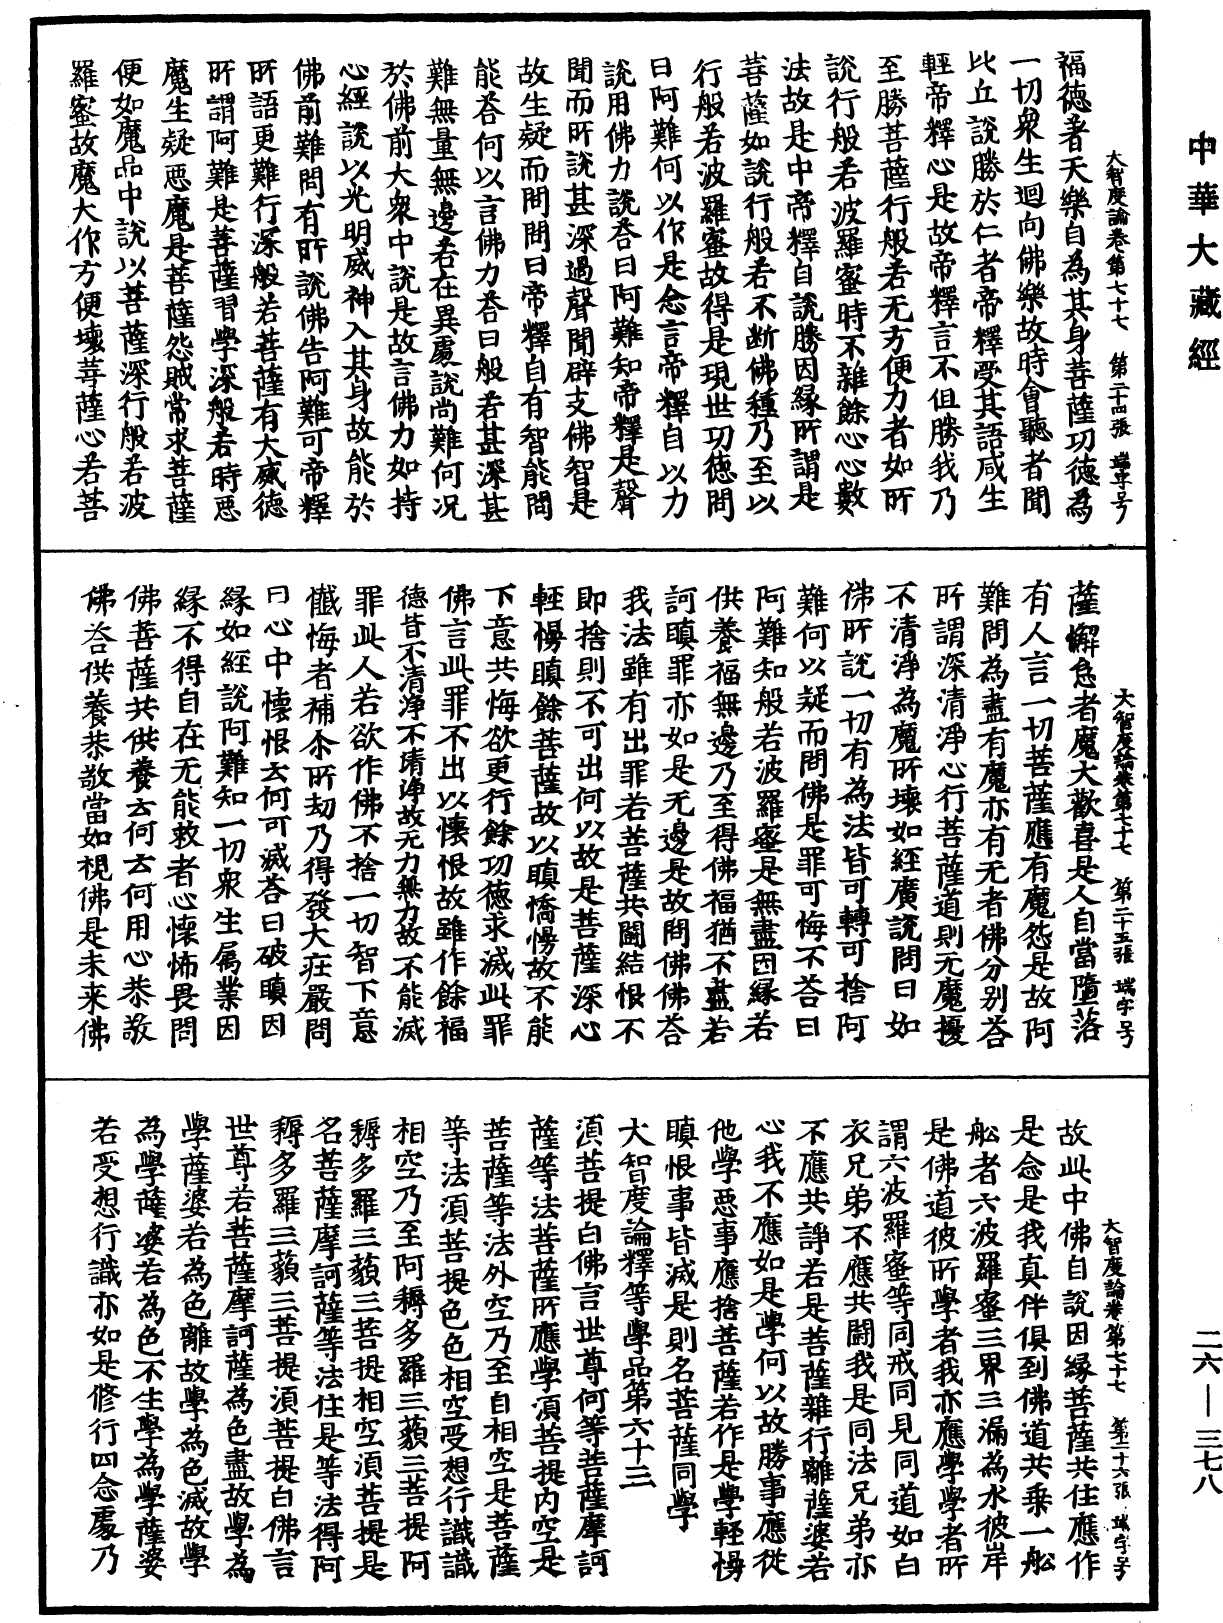 中華大藏經
大智度論卷第七十七　第二十四張　端字号
福德者天樂自為其身菩薩功德為
一切衆生迴向佛樂故時會聽者聞
比丘說勝於仁者帝釋受其語咸生
輕帝釋心是故帝釋言不但勝我乃
至勝菩薩行般若无方便力者如所
說行般若波羅蜜時不雜餘心心數
法故是中帝釋自說勝因緣所謂是
菩薩如說行般若不斷佛種乃至以
行般若波羅蜜故得是現世功德問
曰阿難何以作是念言帝釋自以力
說用佛力說荅曰阿難知帝釋是聲
聞而所說甚深過聲聞辟支佛智是
故生疑而問問曰帝釋自有智能問
能荅何以言佛力荅曰般若甚深甚
難無量無邊若在異處說尚難何況
於佛前大衆中說是故言佛力如持
心經說以光明威神入其身故能於
佛前難問有所說佛告阿難可帝釋
所語更難行深般若菩薩有大威德
所謂阿難是菩薩習學深般若時惡
魔生疑惡魔是菩薩怨賊常求菩薩
便如魔品中說以菩薩深行般若波
羅蜜故魔大作方便壞菩薩心若菩
大智度論卷第七十七　第二十五張　端字号
薩懈怠者魔大歡喜是人自當墮落
有人言一切菩薩應有魔怨是故阿
難問為盡有魔亦有无者佛分別荅
所謂深清淨心行菩薩道則无魔擾
不清淨為魔所壞如經廣說問曰如
佛所說一切有為法皆可轉可捨阿
難何以疑而問佛是罪可悔不荅曰
阿難知般若波羅蜜是無盡因緣若
供養福無邊乃至得佛福猶不盡若
訶瞋罪亦如是无邊是故問佛佛荅
我法雖有出罪若菩薩共鬪結恨不
即捨則不可出何以故是菩薩深心
輕慢瞋餘菩薩故以瞋憍慢故不能
下意共悔欲更行餘功德求滅此罪
佛言此罪不出以懷恨故雖作餘福
德皆不清淨不清淨故无力無力故不能滅
罪此人若欲作佛不捨一切智下意
懺悔者補尒所劫乃得發大莊嚴問
曰心中懷恨云何可滅荅曰破瞋因
緣如經說阿難知一切衆生屬業因
緣不得自在无能救者心懷怖畏問
佛菩薩共供養云何云何用心恭敬
佛荅供養恭敬當如視佛是未來佛
大智度論卷第七十七　第二十六張　端字号
故此中佛自說因緣菩薩共住應作
是念是我真伴俱到佛道共乘一舩
舩者六波羅蜜三界三漏為水彼岸
是佛道彼所學者我亦應學學者所
謂六波羅蜜等同戒同見同道如白
衣兄弟不應共鬪我是同法兄弟亦
不應共諍若是菩薩雜行離薩婆若
心我不應如是學何以故勝事應從
他學惡事應捨菩薩若作是學輕慢
瞋恨事皆滅是則名菩薩同學
大智度論釋等學品第六十三
湏菩提白佛言世尊何等菩薩摩訶
薩等法菩薩所應學湏菩提內空是
菩薩等法外空乃至自相空是菩薩
等法湏菩提色色相空受想行識識
相空乃至阿耨多羅三藐三菩提阿
耨多羅三藐三菩提相空湏菩提是
名菩薩摩訶薩等法住是等法得阿
耨多羅三藐三菩提湏菩提白佛言
世尊若菩薩摩訶薩為色盡故學為
學薩婆若為色離故學為色滅故學
為學薩婆若為色不生學為學薩婆
若受想行識亦如是修行四念處乃
二六—三七八